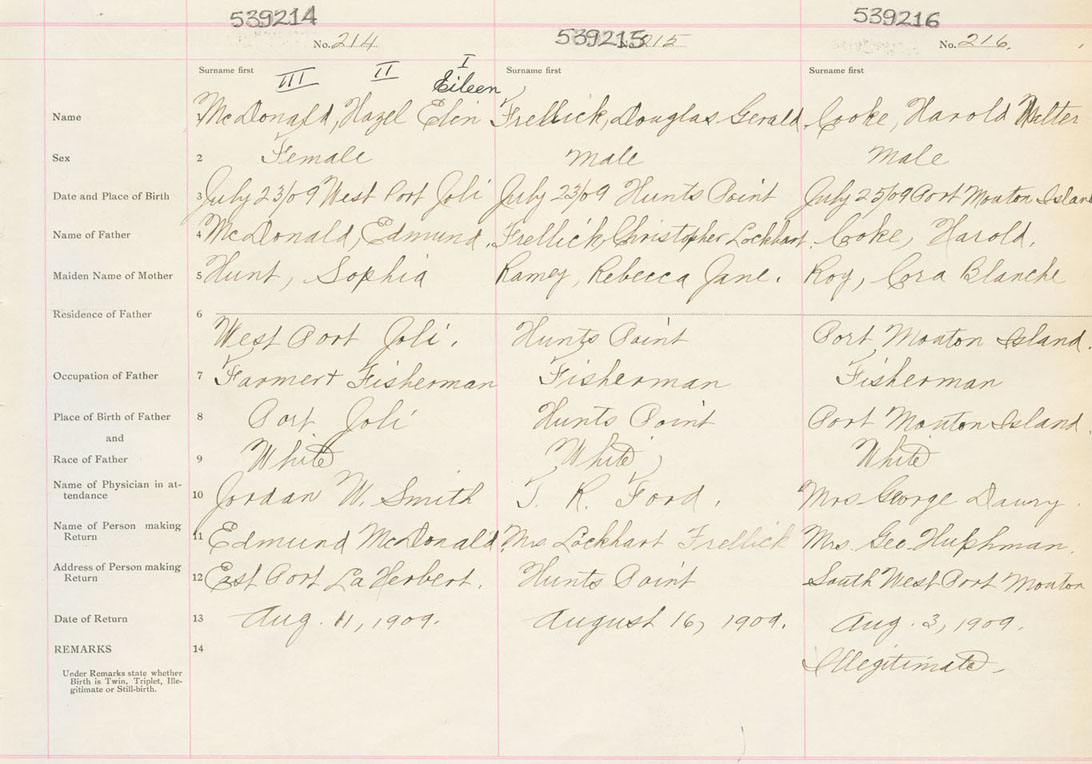 539214 539215 539216
No. 214 215 No. 216.
Surname first Surname first Surname first
III II I
Eileen
Name McDonald, Hazel Elin Frellick, Douglas Gerald Cooke, Harold Walter
Sex 2 Female Male Male
Date and Place of Birth 3 July 23/09 West Port Joli July 23/09 Hunts Point July 25/09 Port Mouton Island
Name of Father 4 McDonald, Edmund. Frellick Christopher Lockhart. Cooke, Harold.
Maiden Name of Mother 5 Hunt, Sophia Ramey, Rebecca Jane. Roy, Cora Blanche
Residence of Father 6
West Port Joli. Hunts Point Port Mouton Island.
Occupation of Father 7 Farmer + Fisherman Fisherman Fisherman
Place of Birth of Father 8 Port Joli Hunts Point Port Mouton Island.
and
Race of Father 9 White White White
Name of Physician in at-
tendance 10 Jordan W. Smith T. R. Ford. Mrs George Daury
Name of Person making
Return 11 Edmund McDonald. Mrs Lockhart Frellick Mrs. Geo. Huphman.
Address of Person making
Return 12 East Port La Herbert. Hunts Point South West Port Mouton
Date of Return 13 Aug. 11, 1909. August 16, 1909. Aug. 3, 1909.
REMARKS 14
Illegitimate.
Under Remarks state whether
Birth is Twin, Triplet, Ille-
gitimate or Still-birth.